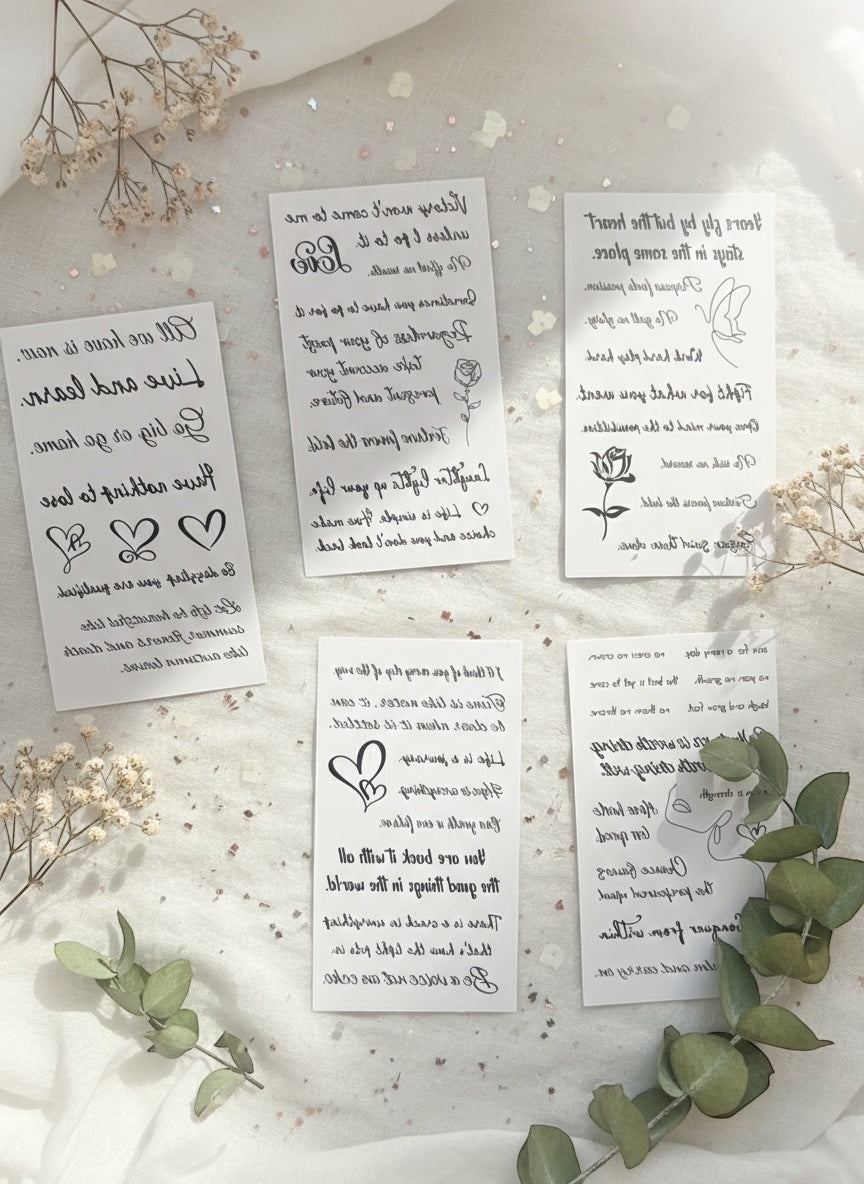 All we have is now.
Live and learn.
Go big or go home.
Have nothing to lose
So dazzling you are
Let life be beautiful like
summer flowers and death
like autumn leaves.
Victory won't come to me
unless I go to it.
Love
No effort no results.
Sometimes you have to go for it.
Regardless of your past
take account your
present and future.
Fortune favors the bold.
Laughter lights up your life.
Life is simple. You make
choice and you don't look back.
Years fly by but the heart
stays in the same place.
passion.
No guts no glory.
Work hard play hard.
Fight for what you want.
Open your mind to the possibilities.
No such no reward.
Fortune favors the bold.
than done.
I'll think of you every step of the way.
Time is like water, it can
be clear when it is settled.
Life is a journey.
Hope is everything.
Our youth is our future.
You are back it with all
the good things in the world.
There is a crack in everything
that's how the light gets in.
Be a voice not an echo.
save for a rainy day. no cross no crown
no pain no growth. the best is yet to come
laugh and grow fat. no thorn no throne
is worth doing
worth doing well.
is strength
More haste
less speed.
Chance favors
the prepared mind.
Conquer from within
and carry on.